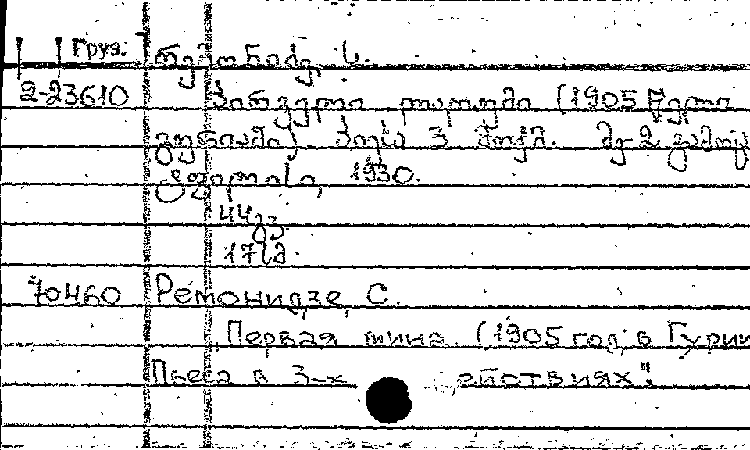 Груз. რემონიძე, ს.
2-23610 პირველი ... (1905 წელი
გურიაში). პიესა 3 მოქმ. მე-2 გამოც
ტფილისი, 1930.
44 გვ.
17 სმ.
70460 Ремонидзе, С.
Первая мина. (1905 год в Гурии
Пьеса в 3-х ействиях".